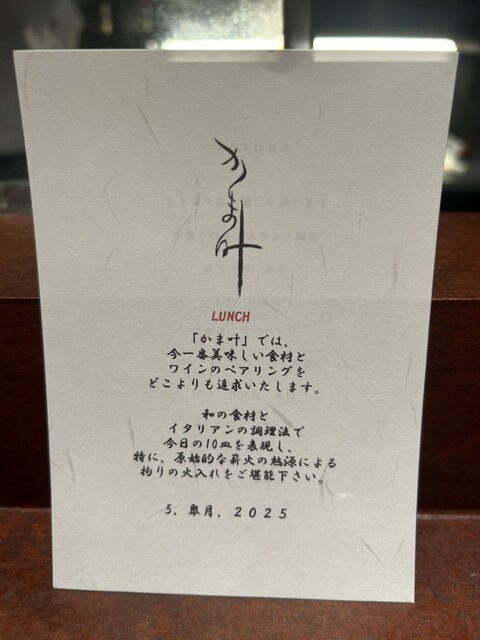 かま叶
LUNCH
「かま叶」では、
今一番美味しい食材と
ワインのペアリングを
どこよりも追求いたします。
和の食材と
イタリアンの調理法で
今日の10皿を表現し、
特に、原始的な薪火の熱源による
拘りの火入れをご堪能下さい。
5. 皐月. 2025